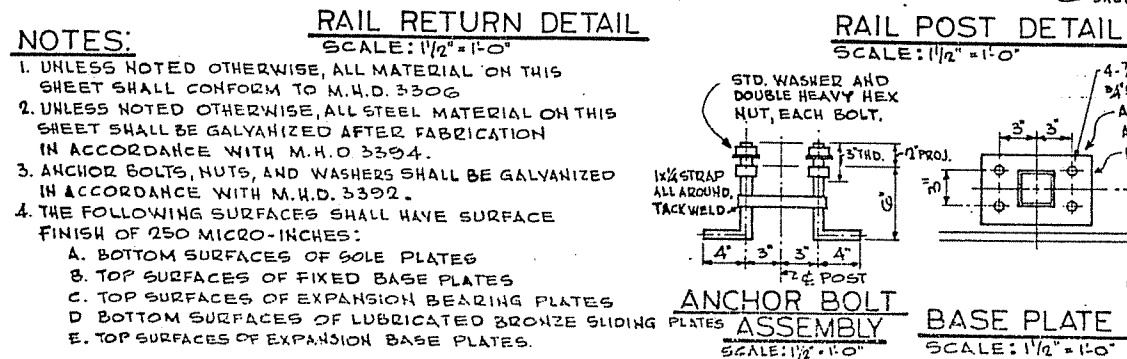 RAIL RETURN DETAIL
SCALE: 1 1/2" = 1'-0"
NOTES:
1. UNLESS NOTED OTHERWISE, ALL MATERIAL ON THIS
SHEET SHALL CONFORM TO M.H.D. 3306
2. UNLESS NOTED OTHERWISE, ALL STEEL MATERIAL ON THIS
SHEET SHALL BE GALVANIZED AFTER FABRICATION
IN ACCORDANCE WITH M.H.D. 3394.
3. ANCHOR BOLTS, NUTS, AND WASHERS SHALL BE GALVANIZED
IN ACCORDANCE WITH M.H.D. 3392.
4. THE FOLLOWING SURFACES SHALL HAVE SURFACE
FINISH OF 250 MICRO-INCHES:
A. BOTTOM SURFACES OF SOLE PLATES
B. TOP SURFACES OF FIXED BASE PLATES
C. TOP SURFACES OF EXPANSION BEARING PLATES
D BOTTOM SURFACES OF LUBRICATED BRONZE SLIDING PLATES
E. TOP SURFACES OF EXPANSION BASE PLATES.
RAIL POST DETAIL
SCALE: 1 1/2" = 1'-0"
STD. WASHER AND
DOUBLE HEAVY HEX
NUT, EACH BOLT.
3" THD.
2" PROJ.
1x1/4 STRAP
ALL AROUND,
TACK WELD
4" 3" 3" 4"
℄ POST
ANCHOR BOLT
ASSEMBLY
SCALE: 1 1/2" = 1'-0"
3" 3"
3"
BASE PLATE
SCALE: 1 1/2" = 1'-0"